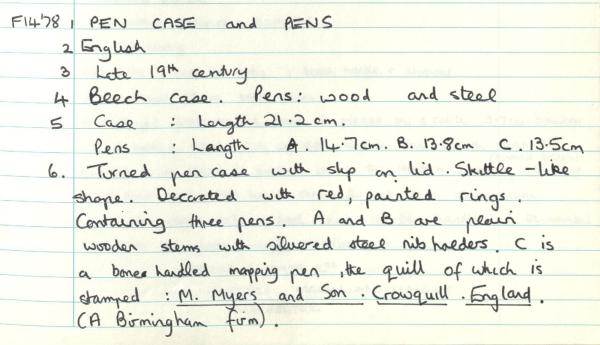 F14'78 1 PEN CASE and PENS
2 English
3 Late 19th century
4 Beech case. Pens: wood and steel
5 Case : Length 21.2cm.
Pens : Length A. 14.7cm. B. 13.8cm C. 13.5cm
6. Turned pen case with slip on lid. Skittle-like
shape. Decorated with red, painted rings.
Containing three pens. A and B are plain
wooden stems with silvered steel nib holders. C is
a bone handled mapping pen, the quill of which is
stamped : M. Myers and Son. Crowquill. England.
(A Birmingham firm).